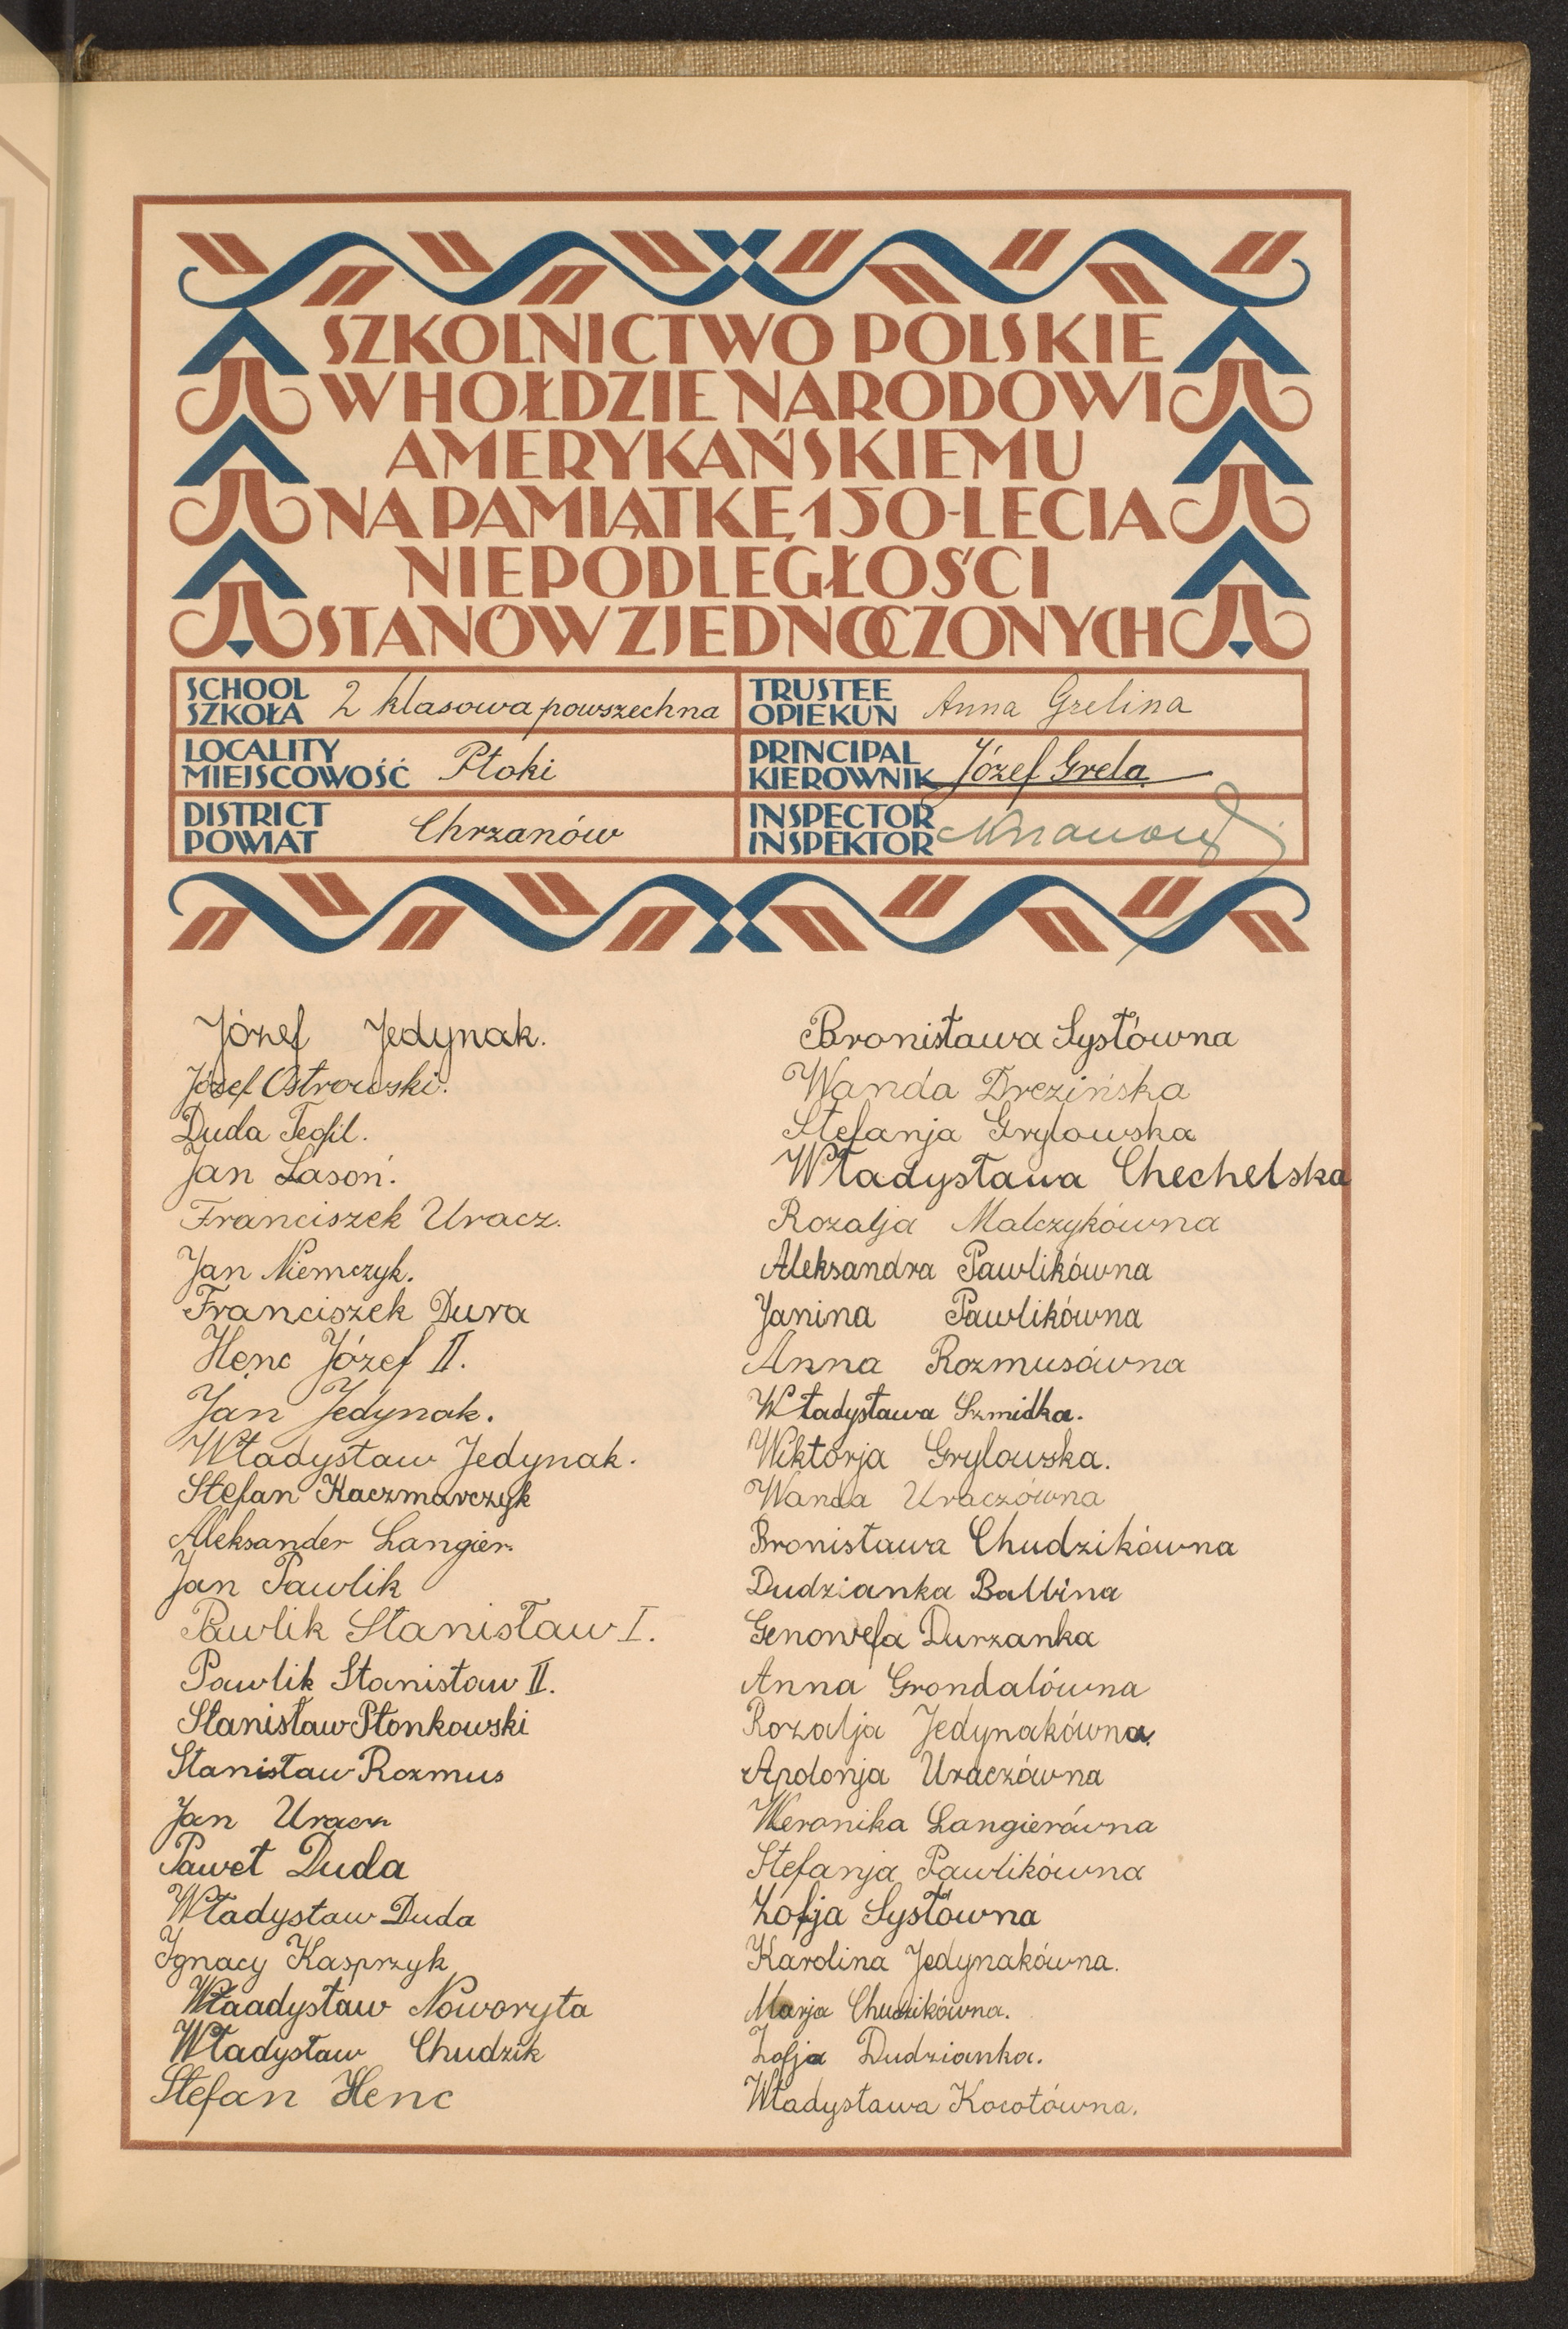 SZKOLNICTWO POLSKIE
W HOŁDZIE NARODOWI
AMERYKAŃSKIEMU
NA PAMIĄTKĘ 150-LECIA
NIEPODLEGŁOŚCI
STANÓW ZJEDNOCZONYCH
SCHOOL
SZKOŁA 2 klasowa powszechna
TRUSTEE
OPIEKUN Anna Grelina
LOCALITY
MIEJSCOWOŚĆ Płoki
PRINCIPAL
KIEROWNIK Józef Grela
DISTRICT
POWIAT Chrzanów
INSPECTOR
INSPEKTOR
Józef Jedynak.
Józef Ostrowski.
Duda Teofil.
Jan Lasoń.
Franciszek Uracz.
Jan Niemczyk.
Franciszek Dura
Henc Józef II.
Jan Jedynak.
Władysław Jedynak.
Stefan Kaczmarczyk
Aleksander Langier.
Jan Pawlik
Pawlik Stanisław I.
Pawlik Stanisław II.
Stanisław Płonkowski
Stanisław Rozmus
Jan Uracz
Paweł Duda
Władysław Duda
Ignacy Kasprzyk
Właadysław Noworyta
Władysław Chudzik
Stefan Henc
Bronisława Sysłówna
Wanda Drezińska
Stefanja Grylowska
Władysława Chechelska
Rozalja Malczykówna
Aleksandra Pawlikówna
Janina Pawlikówna
Anna Rozmusówna
Władysława Szmidka.
Wiktorja Grylowska.
Wanda Uraczówna
Bronisława Chudzikówna
Dudzianka Balbina
Genowefa Durzanka
Anna Grondalówna
Rozalja Jedynakówna.
Apolonja Uraczówna
Weronika Langierówna
Stefanja Pawlikówna
Zofja Sysłówna
Karolina Jedynakówna.
Marja Chudzikówna.
Zofja Dudzianka.
Władysława Kocotówna.